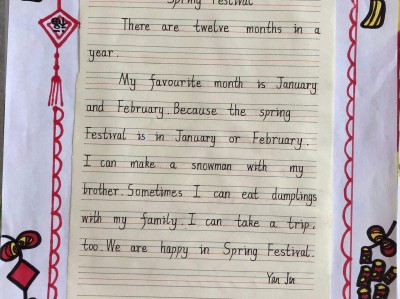 Spring Festival
There are twelve months in a
year.
My favourite month is January
and February. Because the spring
Festival is in January or February.
I can make a snowman with my
brother. Sometimes I can eat dumplings
with my family. I can take a trip,
too. We are happy in Spring Festival.
Yan Jin
福